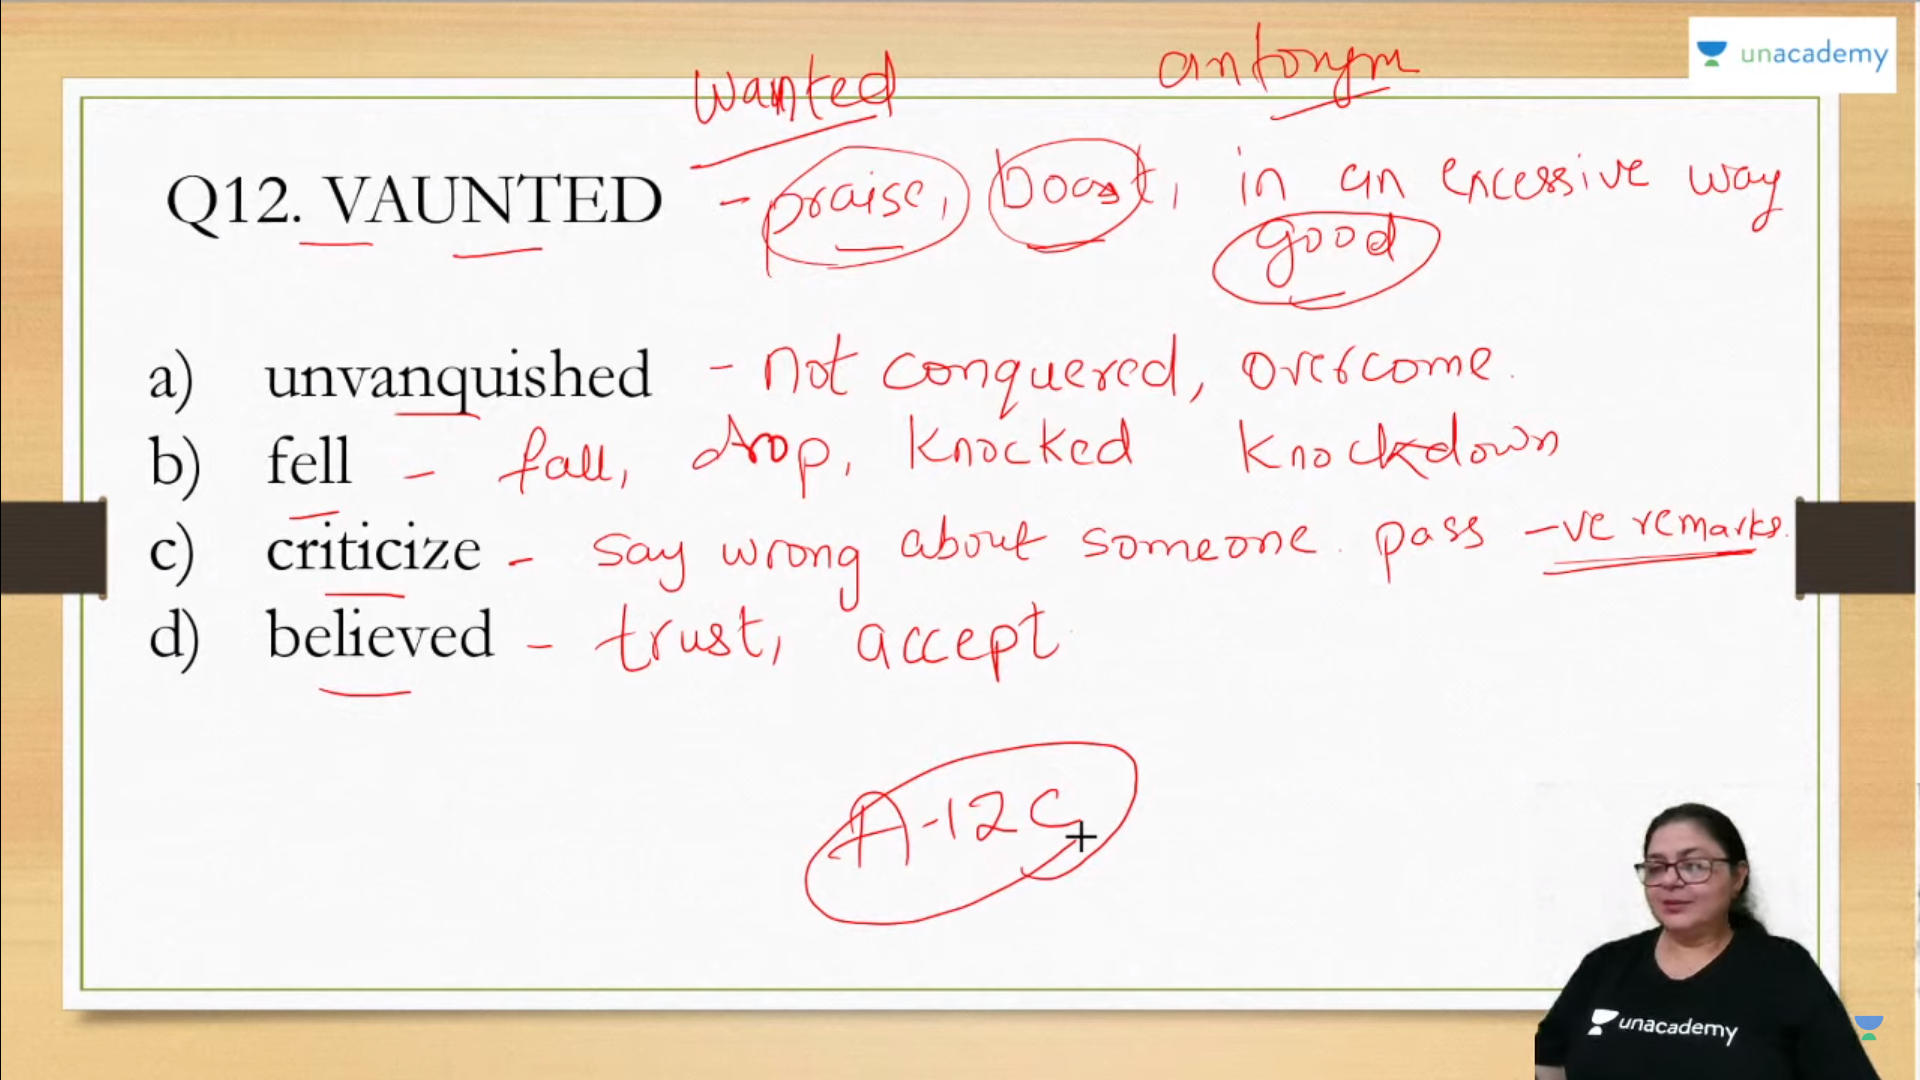 wanted antonym
unacademy
Q12. VAUNTED - praise, boast, in an excessive way
good
a) unvanquished - not conquered, overcome.
b) fell - fall, drop, knocked knockdown
c) criticize - say wrong about someone. pass -ve remarks.
d) believed - trust, accept
A-12 C
unacademy